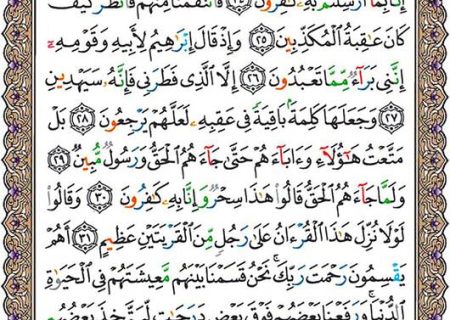 إِنَّا بِمَآ أُرْسِلْتُم بِهِۦ كَٰفِرُونَ ٢٤ فَٱنتَقَمْنَا مِنْهُمْ فَٱنظُرْ كَيْفَ
كَانَ عَٰقِبَةُ ٱلْمُكَذِّبِينَ ٢٥ وَإِذْ قَالَ إِبْرَٰهِيمُ لِأَبِيهِ وَقَوْمِهِۦٓ
إِنَّنِى بَرَآءٌ مِّمَّا تَعْبُدُونَ ٢٦ إِلَّا ٱلَّذِى فَطَرَنِى فَإِنَّهُۥ سَيَهْدِينِ
٢٧ وَجَعَلَهَا كَلِمَةًۢ بَاقِيَةً فِى عَقِبِهِۦ لَعَلَّهُمْ يَرْجِعُونَ ٢٨ بَلْ
مَتَّعْتُ هَٰٓؤُلَآءِ وَءَابَآءَهُمْ حَتَّىٰ جَآءَهُمُ ٱلْحَقُّ وَرَسُولٌ مُّبِينٌ ٢٩
وَلَمَّا جَآءَهُمُ ٱلْحَقُّ قَالُوا۟ هَٰذَا سِحْرٌ وَإِنَّا بِهِۦ كَٰفِرُونَ ٣٠ وَقَالُوا۟
لَوْلَا نُزِّلَ هَٰذَا ٱلْقُرْءَانُ عَلَىٰ رَجُلٍ مِّنَ ٱلْقَرْيَتَيْنِ عَظِيمٍ ٣١ أَهُمْ
يَقْسِمُونَ رَحْمَتَ رَبِّكَ نَحْنُ قَسَمْنَا بَيْنَهُم مَّعِيشَتَهُمْ فِى ٱلْحَيَوٰةِ
ٱلدُّنْيَا وَرَفَعْنَا بَعْضَهُمْ فَوْقَ بَعْضٍ دَرَجَٰتٍ لِّيَتَّخِذَ بَعْضُهُم